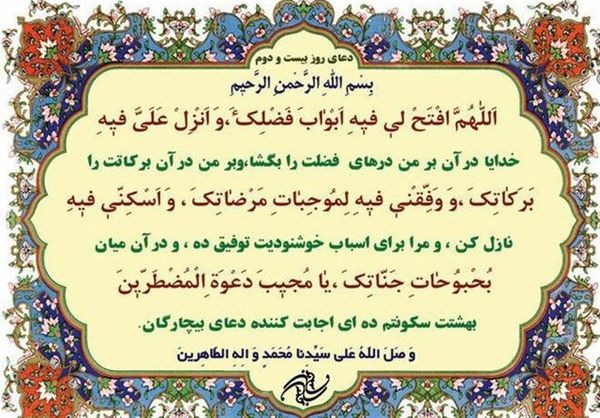 دعای روز بیست و دوم
بِسْمِ اللهِ الرَّحْمنِ الرَّحیمِ
اَللّهُمَّ افْتَحْ لی فیهِ اَبْوابَ فَضْلِکَ،وَ اَنْزِلْ عَلَیَّ فیهِ
خدایا در آن بر من درهای فضلت را بگشا،وبر من در آن برکاتت را
بَرَکاتِکَ،وَ وَفِّقْنی فیهِ لِمُوجِباتِ مَرْضاتِکَ،وَ اَسْکِنّی فیهِ
نازل کن ، و مرا برای اسباب خوشنودیت توفیق ده ، و در آن میان
بُحْبُوحاتِ جَنّاتِکَ،یا مُجیبَ دَعْوَةِ الْمُضْطَرّینَ
بهشتت سکونتم ده ای اجابت کننده دعای بیچارگان.
وَ صَلَ اللهُ عَلی سَیِّدِنا مُحَمَدٍ وَ الِهِ الطّاهِرینَ